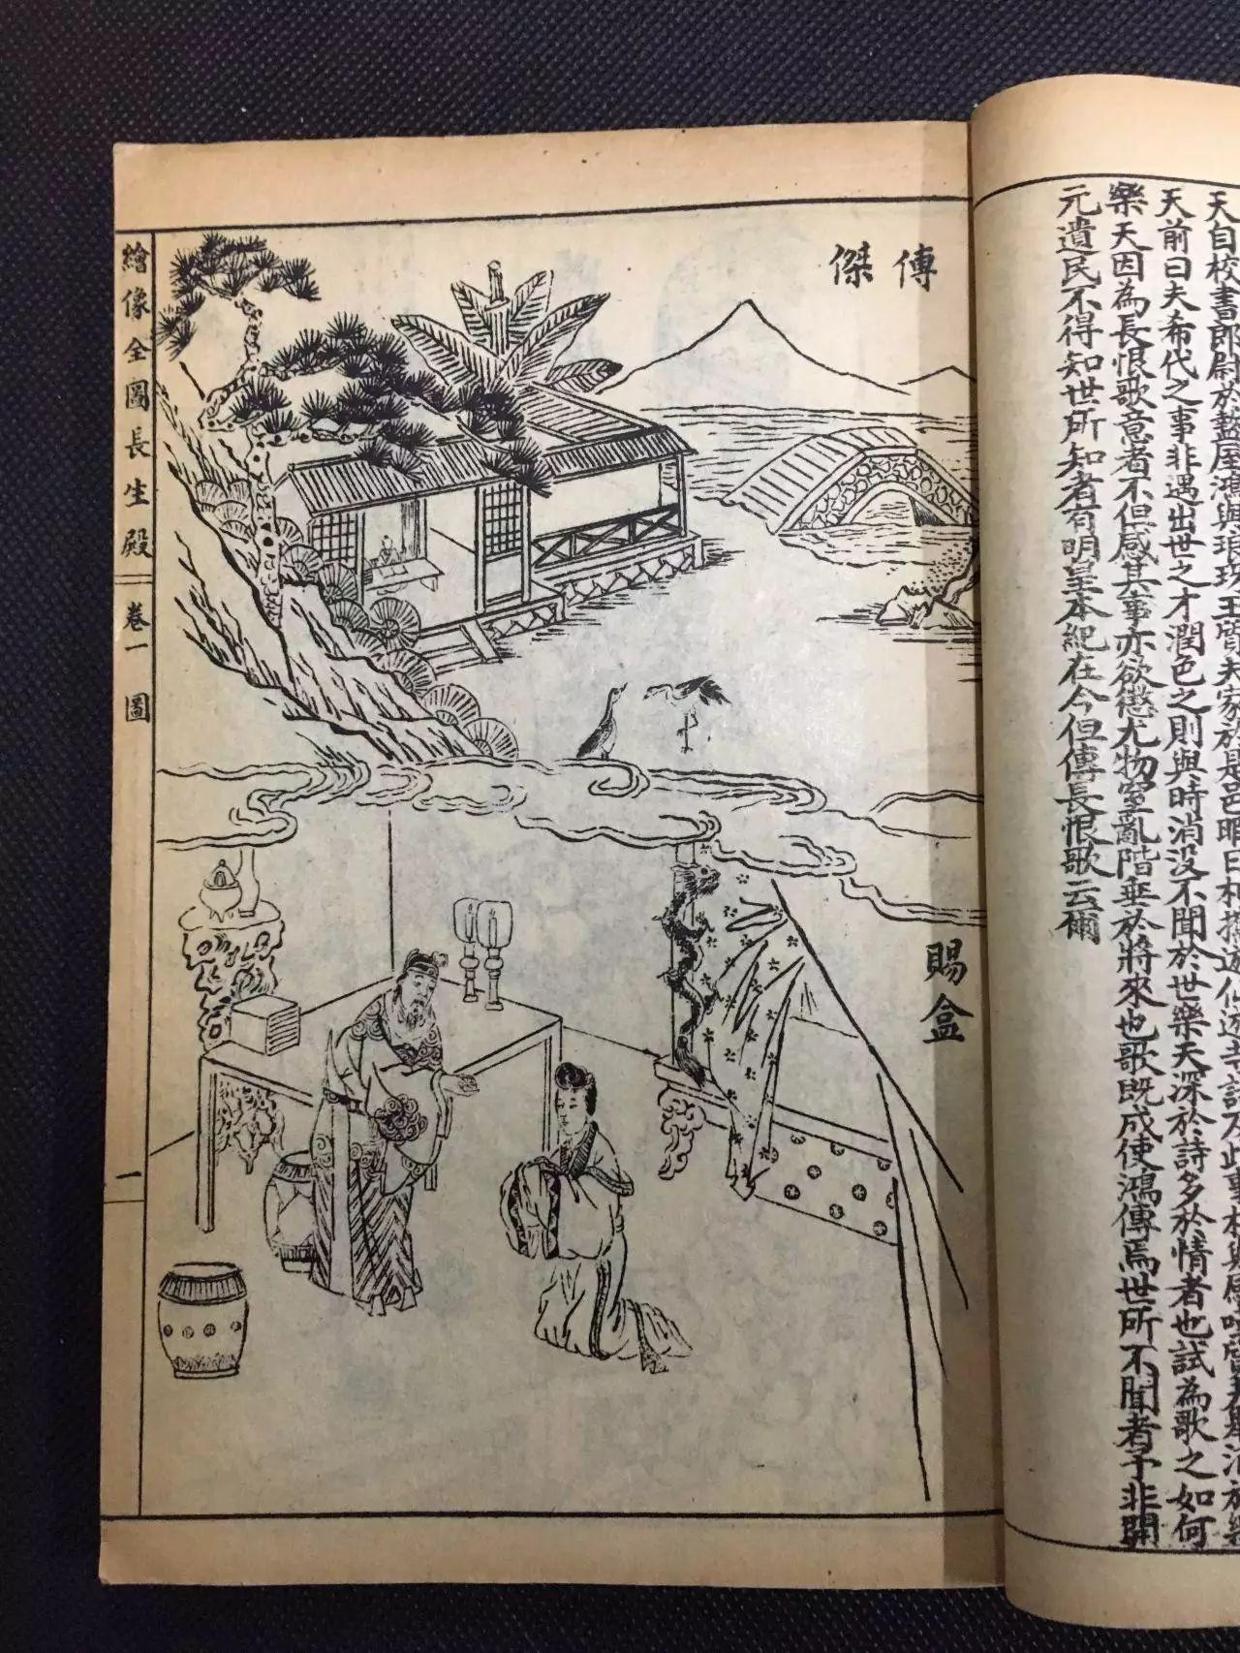 天自校書郎尉於盩厔鴻與琅玡王質夫家於是邑暇日相攜遊仙遊寺話及此事相與感嘆質夫舉酒於樂
天前曰夫希代之事非遇出世之才潤色之則與時消没不聞於世樂天深於詩多於情者也試為歌之如何
樂天因為長恨歌意者不但感其事亦欲懲尤物窒亂階垂於將來也歌既成使鴻傳焉世所不聞者予非開
元遺民不得知世所知者有明皇本紀在今但傳長恨歌云爾
傳傑
賜盒
繪像全圖長生殿 卷一 圖 一